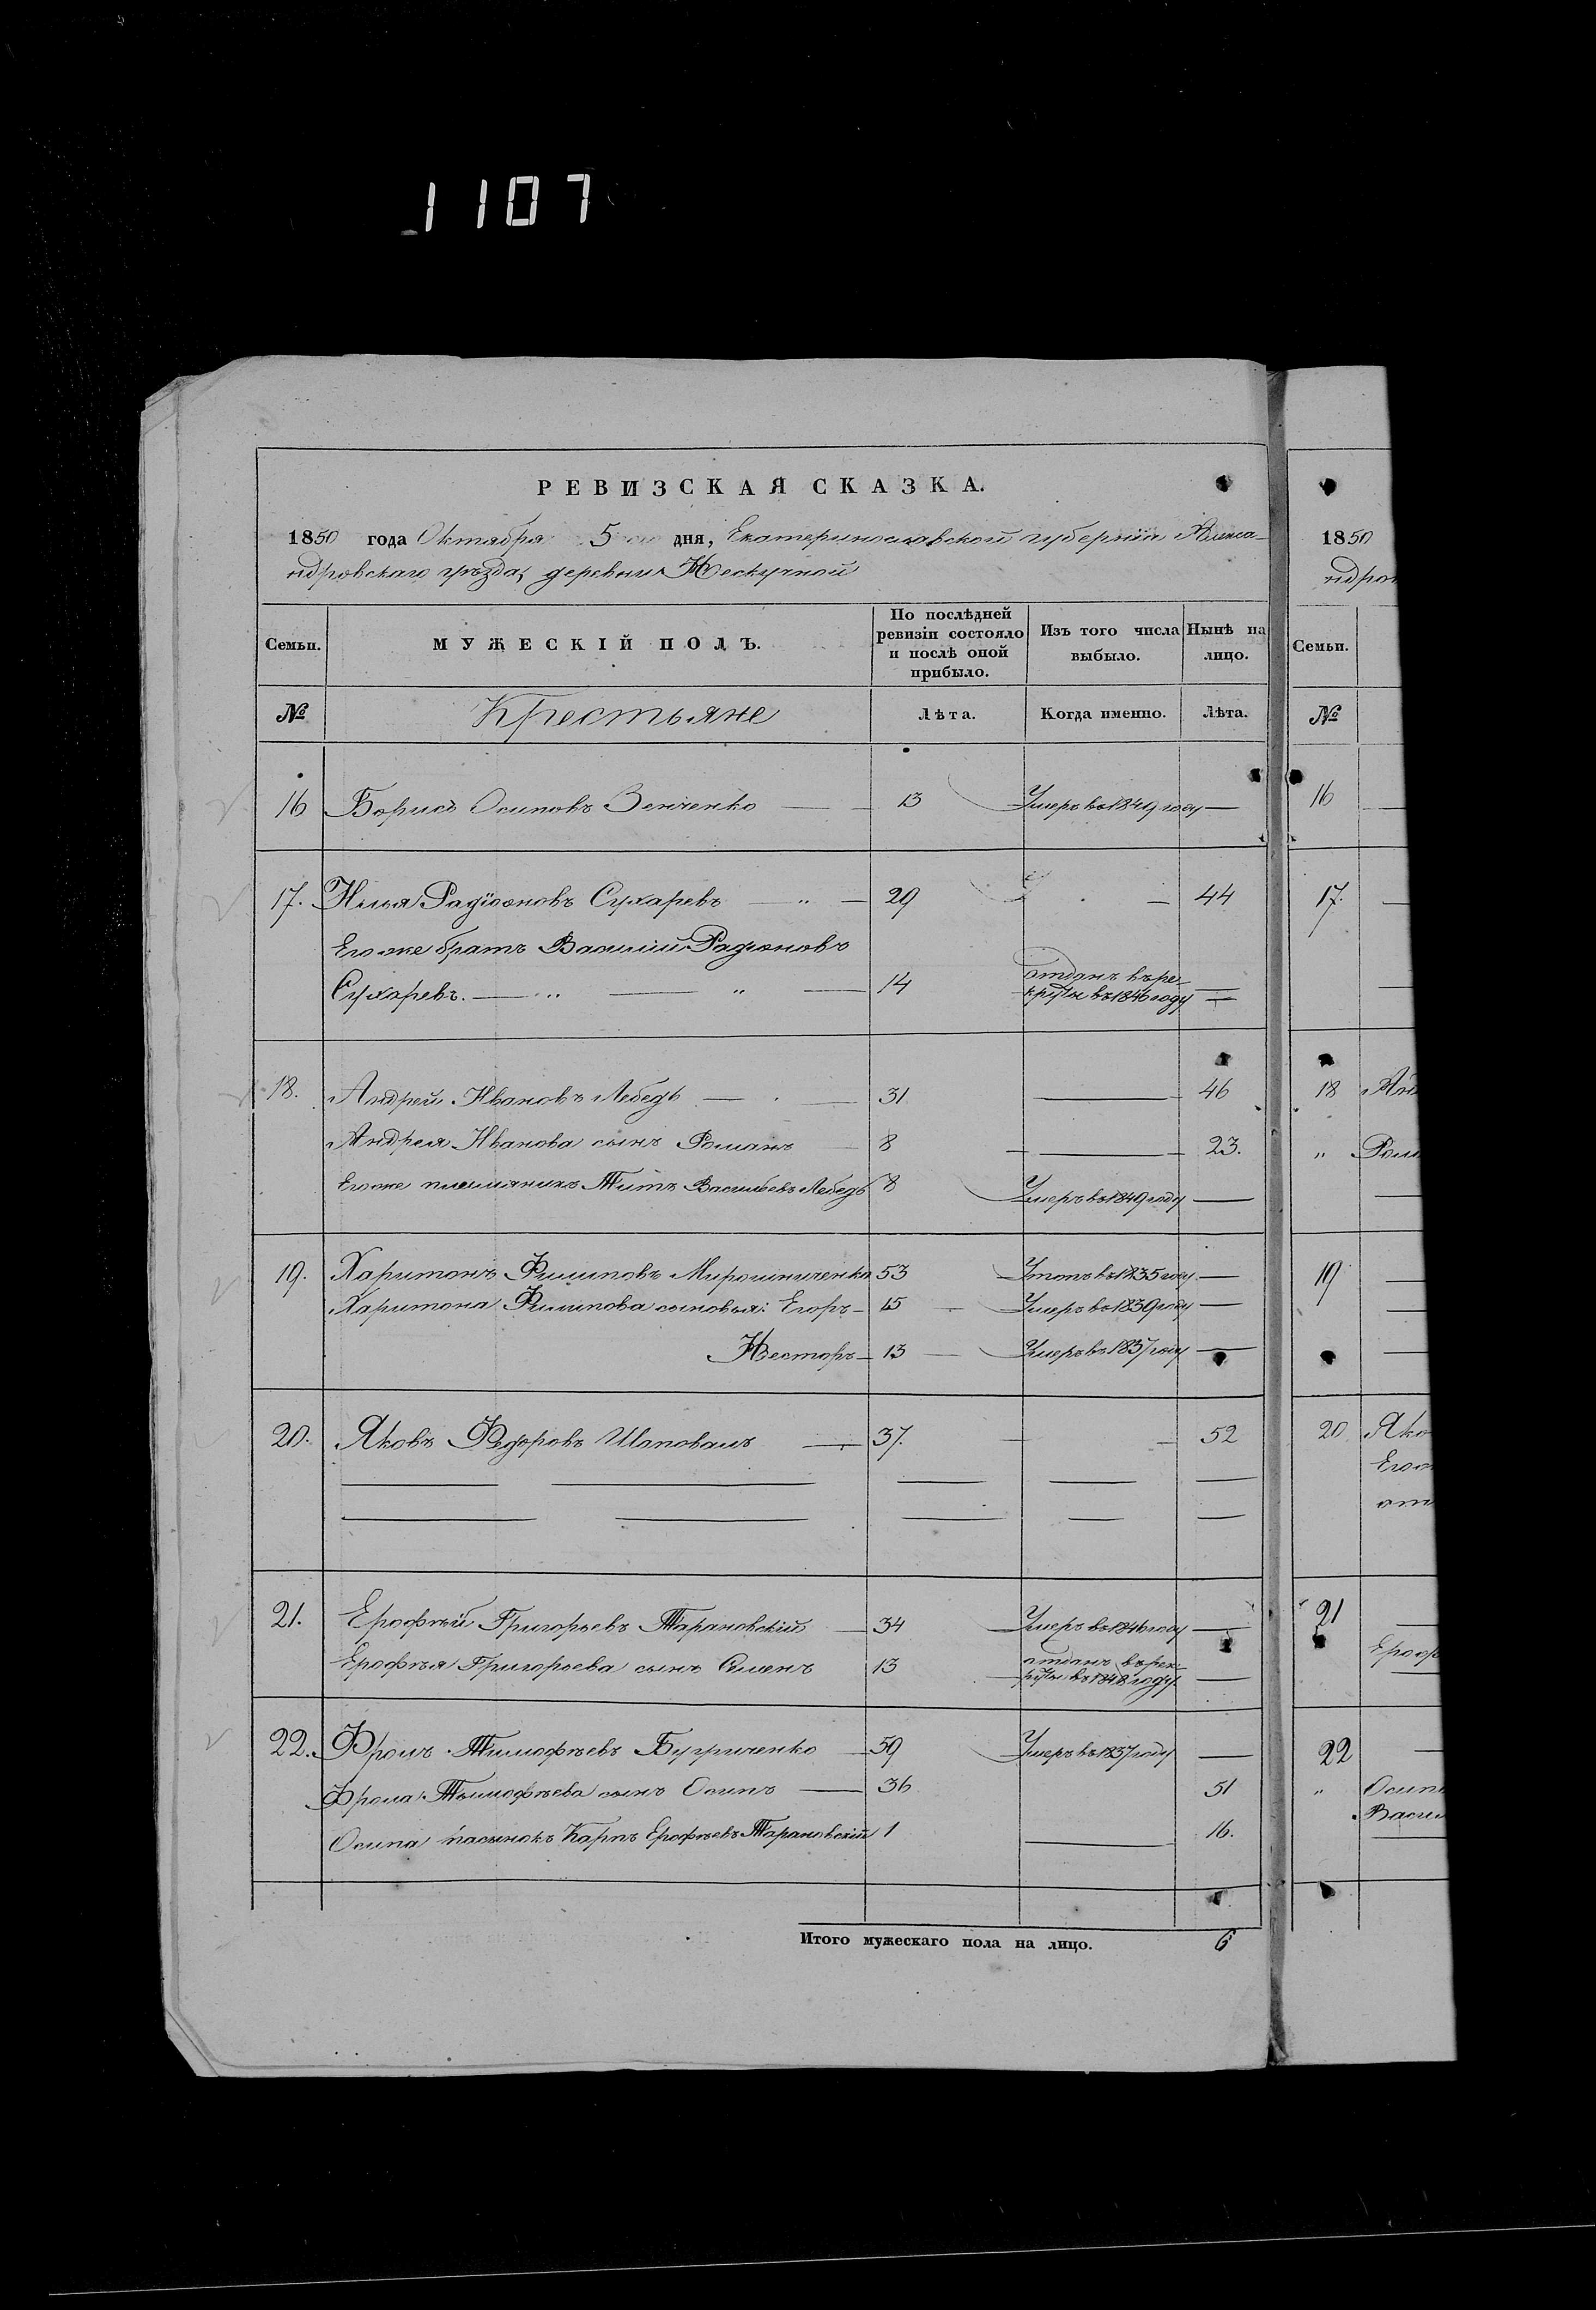 1107
РЕВИЗСКАЯ СКАЗКА.
1850 года Октября 5 дня, Екатеринославской губерніи Алекса-
ндровскаго уѣзда, деревни Нескучной
Семьи. МУЖЕСКІЙ ПОЛЪ. По послѣдней ревизіи состояло и послѣ оной прибыло. Изъ того числа выбыло. Нынѣ на лицо.
№ Крестьяне Лѣта. Когда именно. Лѣта.
16 Борисъ Осиповъ Зенченко — 13 Умеръ въ 1849 году —
17. Илья Радіоновъ Сухаревъ — „ — 29 — 44
Его же братъ Василій Радіоновъ
Сухаревъ. — „ — „ — 14 отданъ въ ре-
круты въ 1846 году —
18. Андрей Ивановъ Лебедь — 31 — 46
Андрея Иванова сынъ Романъ 8 — 23.
Его же племянникъ Титъ Васильевъ Лебедь 8 Умеръ въ 1849 году —
19. Харитонъ Филиповъ Мирошниченко 53 Утопъ въ 1835 году —
Харитона Филипова сыновья: Егоръ — 15 Умеръ въ 1839 году —
Несторъ — 13 Умеръ въ 1837 году —
20. Яковъ Федоровъ Шаповалъ — 37. — 52
21. Ерофѣй Григорьевъ Тарановскій — 34 Умеръ въ 1846 году —
Ерофѣя Григорьева сынъ Семенъ 13 отданъ въ рек-
руты въ 1848 году —
22. Фролъ Тимофѣевъ Бугриченко — 59 Умеръ въ 1837 году —
Фрола Тимофѣева сынъ Осипъ — 36 51
Осипа пасынокъ Карпъ Ерофѣевъ Тарановскій 1 — 16.
Итого мужескаго пола на лицо. 6
1850
ндров
Семьи.
№
16
17.
18 Ан
„ Рома
19
20 Яко
Его
от
21
Ероф
22
„ Осип
Васил